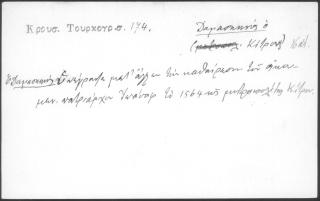 Κρουσ. Τουρκογρ. 174.
Δαμασκηνός ὁ
Κίτρους
Ὁ Δαμασκηνός ὑπέγραψε μετ' ἄλλων τὴν καθαίρεσιν τοῦ οἰκου-
μεν. πατριάρχου Ἰωάσαφ τῷ 1564 ὡς μητροπολίτης Κίτρου.